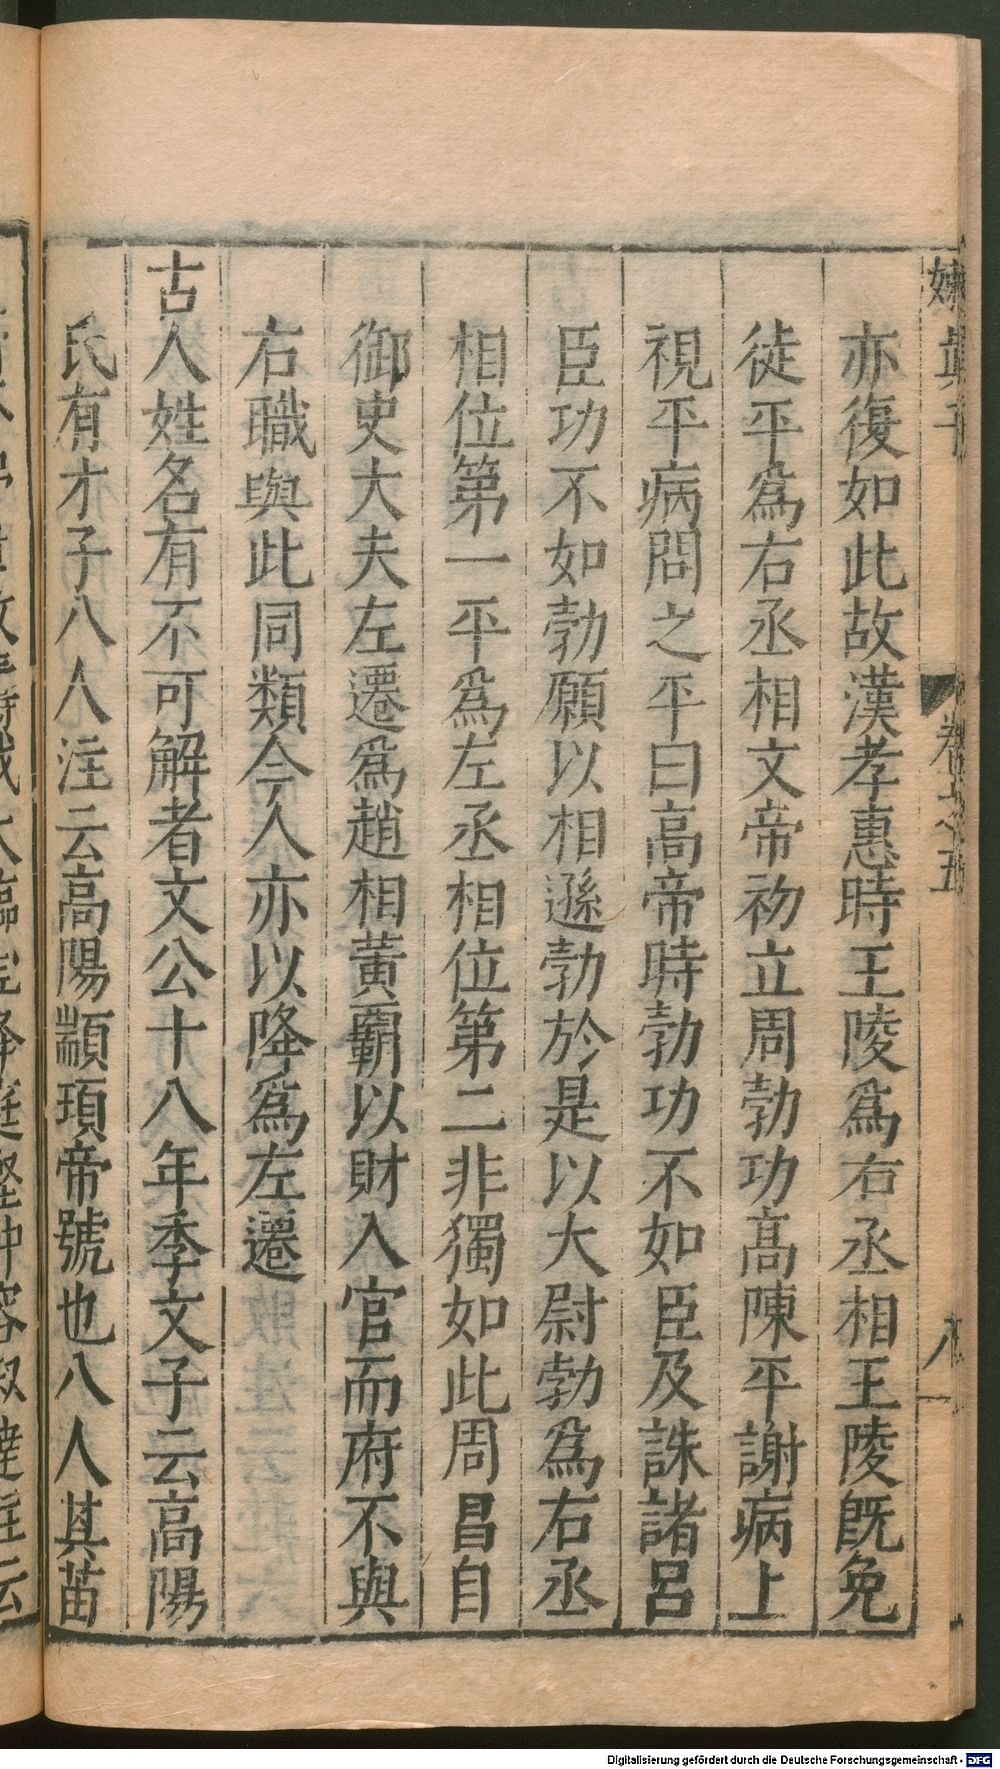 亦復如此故漢孝惠時王陵爲右丞相王陵旣免
徙平爲右丞相文帝初立周勃功高陳平謝病上
視平病問之平曰高帝時勃功不如臣及誅諸呂
臣功不如勃願以相遜勃於是以大尉勃爲右丞
相位第一平爲左丞相位第二非獨如此周昌自
御史大夫左遷爲趙相黃霸以財入官而府不與
右職與此同類今人亦以降爲左遷
古人姓名有不可解者文公十八年季文子云高陽
氏有才子八人注云高陽顓頊帝號也八人其苗
Digitalisierung gefördert durch die Deutsche Forschungsgemeinschaft - DFG